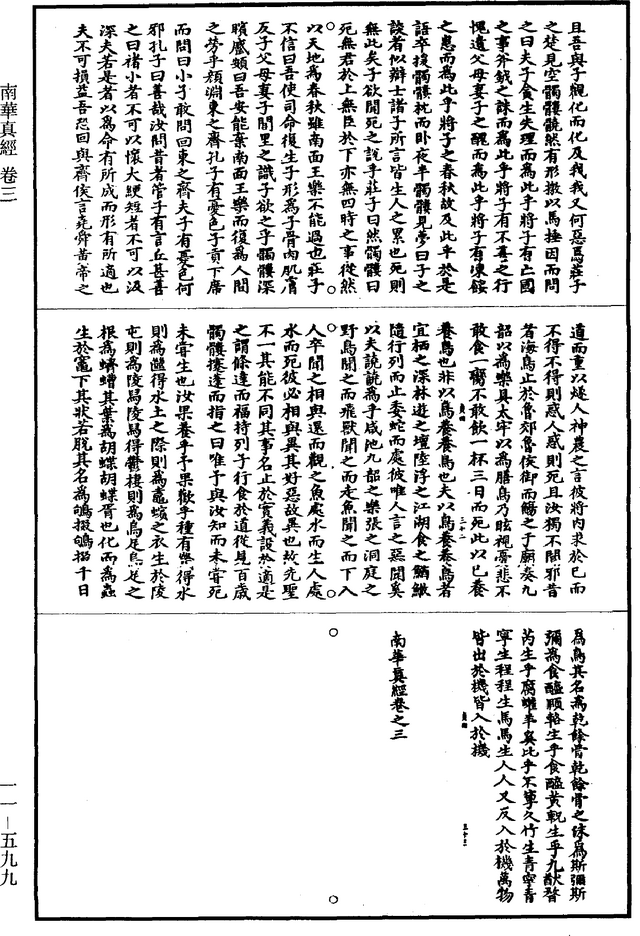 南華真經 卷三
且吾與子觀化而化及我我又何惡焉莊子
之楚見空髑髏髐然有形撽以馬捶因而問
之曰夫子貪生失理而為此乎將子有亡國
之事斧鉞之誅而為此乎將子有不善之行
愧遺父母妻子之醜而為此乎將子有凍餒
之患而為此乎將子之春秋故及此乎於是
語卒援髑髏枕而卧夜半髑髏見夢曰子之
談者似辯士諸子所言皆生人之累也死則
無此矣子欲聞死之說乎莊子曰然髑髏曰
死無君於上無臣於下亦無四時之事從然
以天地為春秋雖南面王樂不能過也莊子
不信曰吾使司命復生子形為子骨肉肌膚
反子父母妻子閭里之識子欲之乎髑髏深
矉蹙頞曰吾安能棄南面王樂而復為人間
之勞乎顏淵東之齊孔子有憂色子貢下席
而問曰小子敢問回東之齊夫子有憂色何
邪孔子曰善哉汝問昔者管子有言丘甚善
之曰褚小者不可以懷大綆短者不可以汲
深夫若是者以為命有所成而形有所適也
夫不可損益吾恐回與齊侯言堯舜黃帝之
道而重以燧人神農之言彼將內求於己而
不得不得則惑人惑則死且汝獨不聞邪昔
者海鳥止於魯郊魯侯御而觴之于廟奏九
韶以為樂具太牢以為膳鳥乃眩視憂悲不
敢食一臠不敢飲一杯三日而死此以己養
養鳥也非以鳥養養鳥也夫以鳥養養鳥者
宜栖之深林遊之壇陸浮之江湖食之鰌鰷
隨行列而止委蛇而處彼唯人言之惡聞奚
以夫譊譊為乎咸池九韶之樂張之洞庭之
野鳥聞之而飛獸聞之而走魚聞之而下入
人卒聞之相與還而觀之魚處水而生人處
水而死彼必相與異其好惡故異也故先聖
不一其能不同其事名止於實義設於適是
之謂條達而福持列子行食於道從見百歲
髑髏攓蓬而指之曰唯予與汝知而未嘗死
未嘗生也汝果養乎予果歡乎種有幾得水
則為得水土之際則為鼃蠙之衣生於陵
屯則為陵舄陵舄得鬱棲則為烏足烏足之
根為蠐螬其葉為胡蝶胡蝶胥也化而為蟲
生於竈下其狀若脫其名為鴝掇鴝掇千日
為鳥其名為乾餘骨乾餘骨之沫為斯彌斯
彌為食醯頤輅生乎食醯黃軦生乎九猷瞀
芮生乎腐蠸羊奚比乎不箰久竹生青寧青
寧生程程生馬馬生人人又反入於機萬物
皆出於機皆入於機
南華真經卷之三
一一—五九九